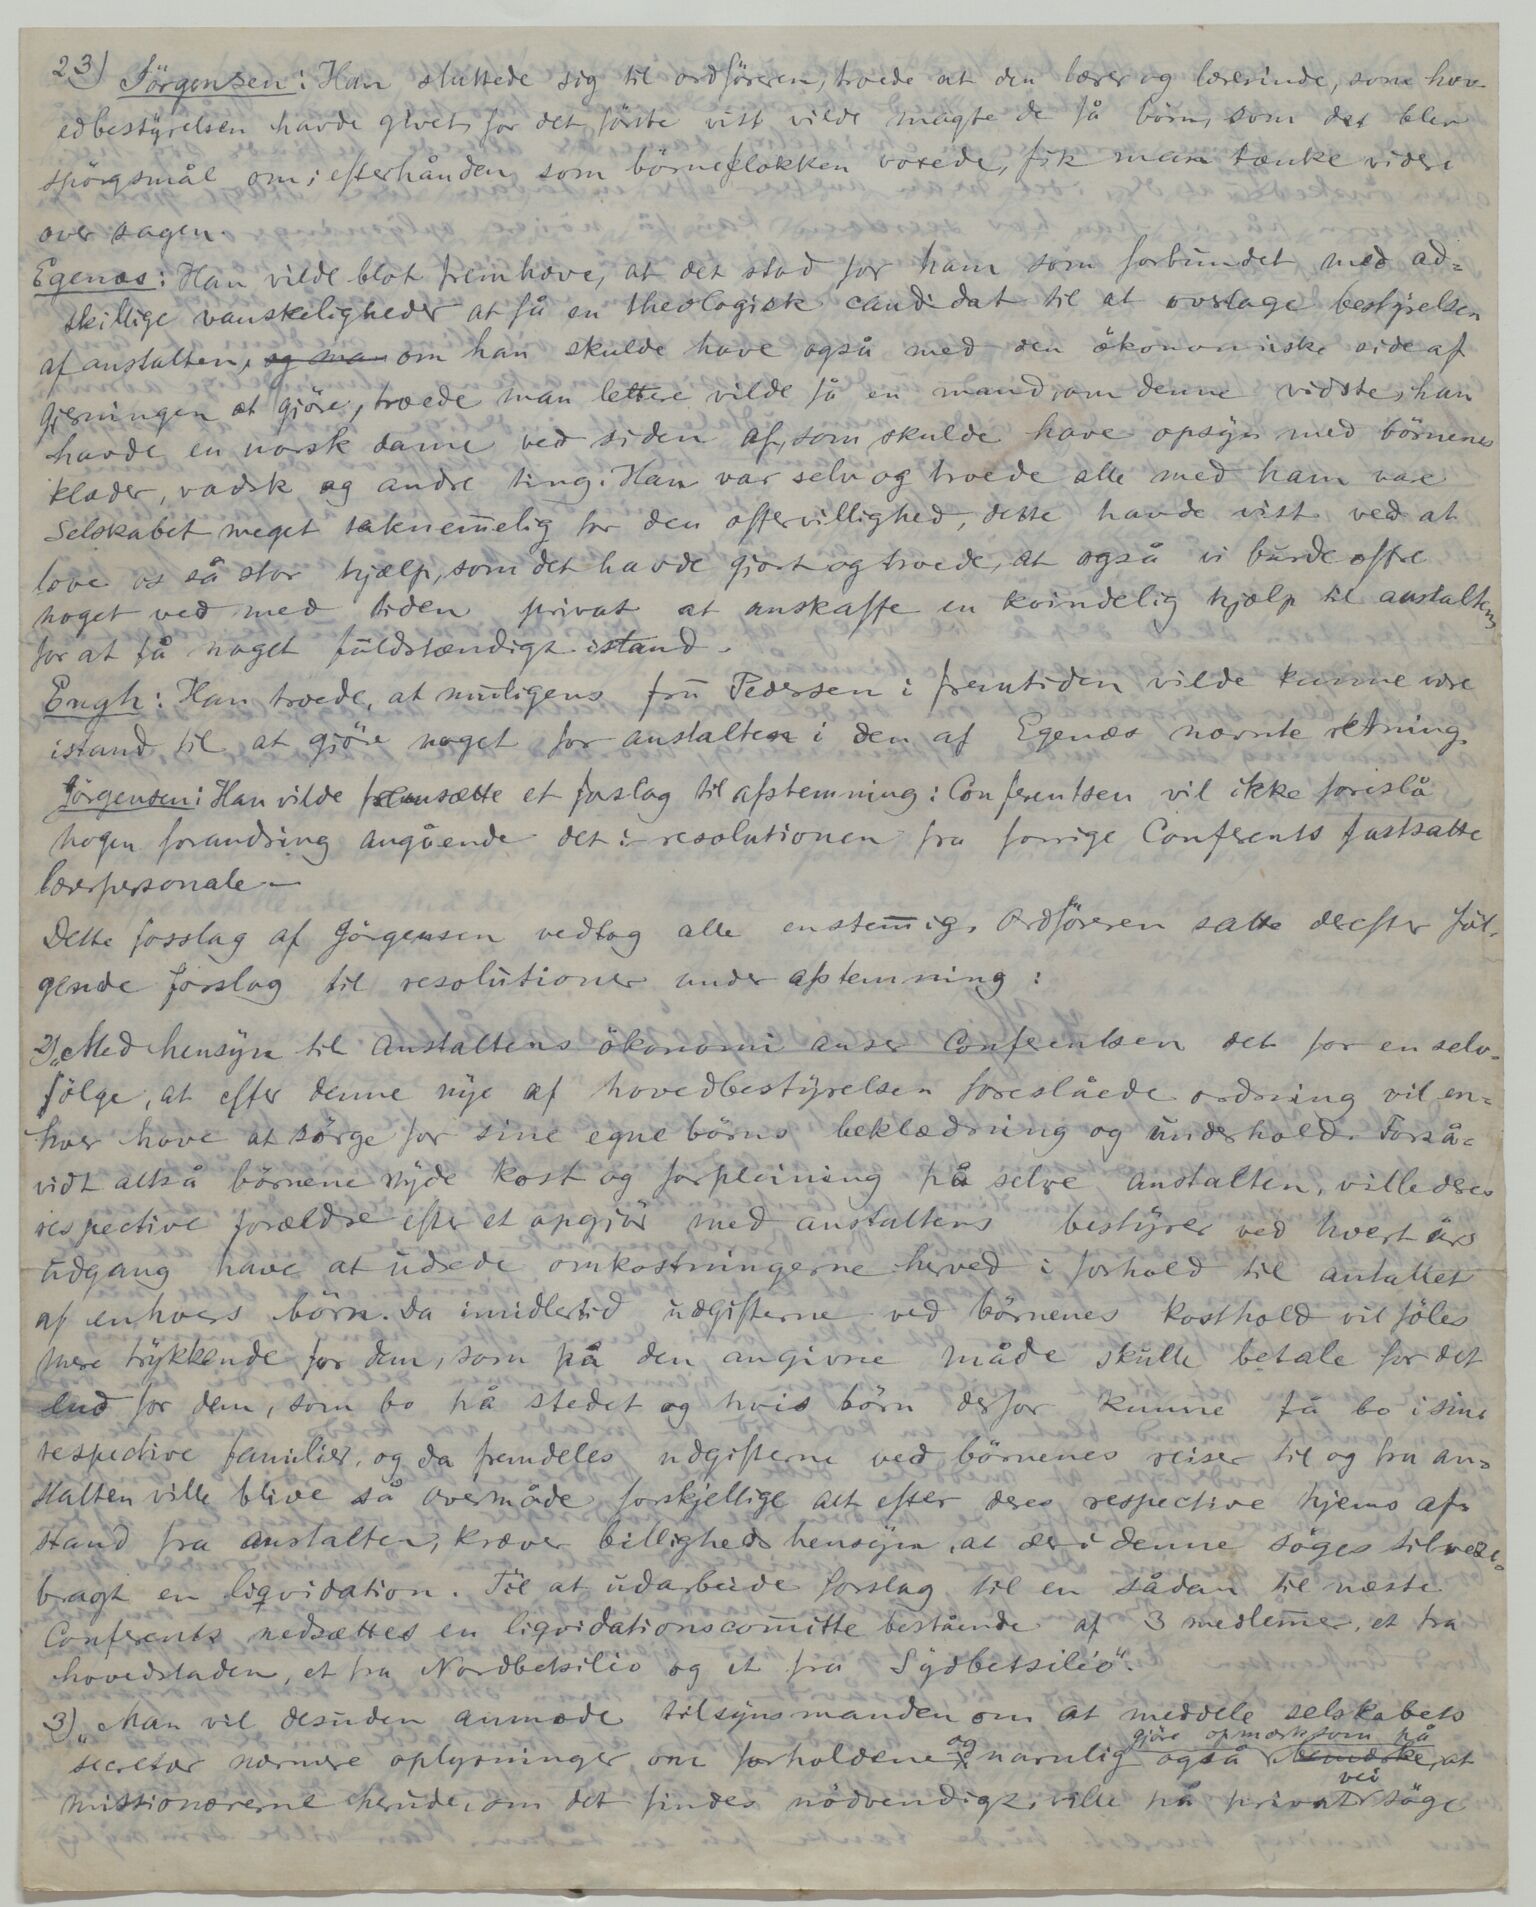 23) Jörgensen: Han sluttede sig til ordföreren, troede at den lærer og lærerinde, som hov-
edbestyrelsen havde givet, for det förste vist vilde magte de få börn, som det blev
spörgsmål om; efterhånden som börneflokken voxede, fik man tænke videre
over sagen.
Egenæs: Han vilde blot fremhæve, at det stod for ham som forbundet med ad=
skillige vanskeligheder at få en theologisk candidat til at overtage bestyrelsen
af anstalten, og man om han skulde have også med den ökonomiske side af
gjerningen at gjöre, troede man lettere vilde få en mand, om denne vidste, han
havde en norsk dame ved siden af, som skulde have opsyn med börnenes
klæder, vadsk og andre ting. Han var selv og troede alle med ham vare
Selskabet meget taknem̅elig for den offervillighed, dette havde vist ved at
love os så stor hjælp, som det havde gjort og troede, at også vi burde offre
noget ved med tiden privat at anskaffe en kvindelig hjælp til anstalten,
for at få noget fuldstændigt istand.
Engh: Han troede, at muligens fru Pedersen i fremtiden vilde kunne være
istand til at gjöre noget for anstalten i den af Egenæs nævnte retning.
Jörgensen: Han vilde fremsætte et forslag til afstemning: Conferentsen vil ikke foreslå
nogen forandring angående det i resolutionen fra forrige Conferents fastsatte
lærerpersonale.—
Dette forslag af Jörgensen vedtog alle enstem̅ig. Ordföreren satte derefter föl-
gende forslag til resolutioner under afstemning:
2) „Med hensyn til Anstaltens ökonomi anser Conferentsen det for en selv-
fölge, at efter denne nye af hovedbestyrelsen foreslåede ordning vil en=
hver have at sörge for sine egne börns beklædning og underhold. Forså=
vidt altså börnene nyde kost og forpleining på selve anstalten, ville deres
respective forældre efter et opgjör med anstaltens bestyrer ved hvert års
udgang have at udrede omkostningerne herved i forhold til antallet
af enhvers börn. Da imidlertid udgifterne ved börnenes kosthold vil föles
mere trykkende for dem, som på den angivne måde skulle betale for det
end for dem, som bo på stedet og hvis börn derfor kunne få bo i sine
respective familier, og da fremdeles udgifterne ved börnenes reiser til og fra an=
stalten ville blive så overmåde forskjellige alt efter deres respective hjems af=
stand fra anstalten, kræver billigheds hensyn, at der i denne söges tilveie=
bragt en liqvidation. Til at udarbeide forslag til en sådan til næste
Conferents nedsættes en liqvidationscom̅itte bestående af 3 medlem̅er, et fra
hovedstaden, et fra Nordbetsileo og et fra Sydbetsileo".
3) „Man vil desuden anmode tilsynsmanden om at meddele selskabets
secretær nærmere oplysninger om forholdene og navnlig også gjöre opmærksom på bemærke, at
missionærerne herude, om det findes nödvendigt, ville på privat vei söge